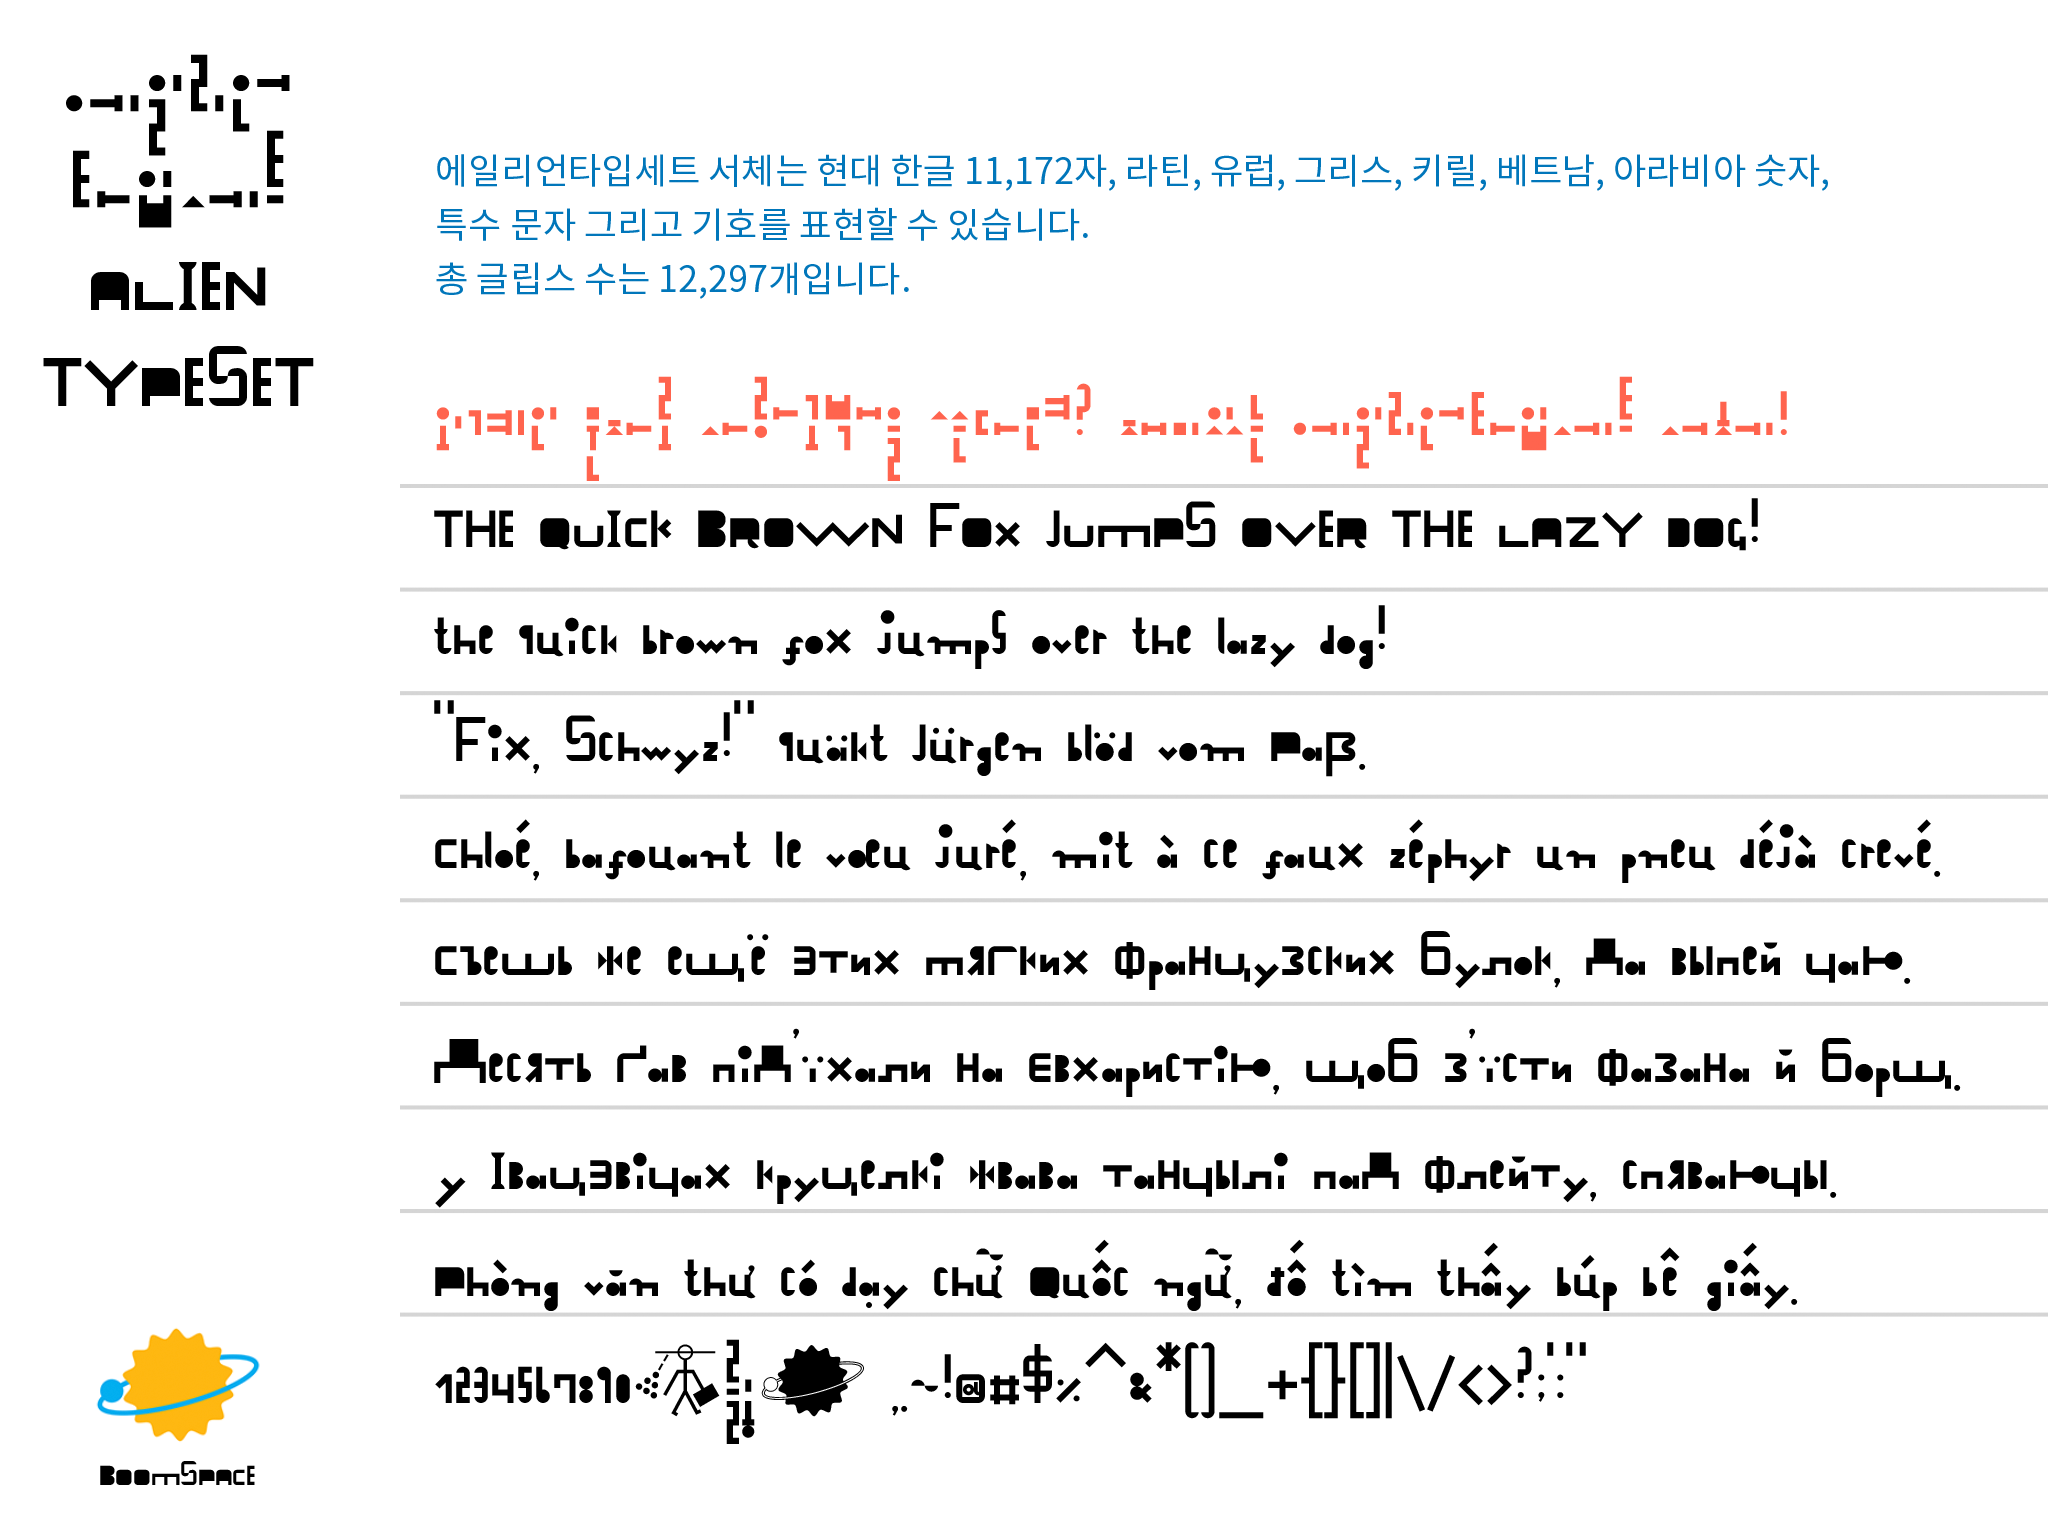 에일리언
타입세트
ALIEN
TYPESET
에일리언타입세트 서체는 현대 한글 11,172자, 라틴, 유럽, 그리스, 키릴, 베트남, 아라비아 숫자,
특수 문자 그리고 기호를 표현할 수 있습니다.
총 글립스 수는 12,297개입니다.
에일리언타입세트
THE QUICK BROWN FOX JUMPS OVER THE LAZY DOG!
the quick brown fox jumps over the lazy dog!
"Fix, Schwyz!" quäkt Jürgen blöd vom Paß.
Chloé, bafouant le vœu juré, mit à ce faux zéphyr un pneu déjà crevé.
Съешь же ещё этих мягких французских булок, да выпей чаю.
Десять ґав під'їхали на євхаристію, щоб з'їсти фазана й борщ.
У Івацэвічах круцелкі жвава танцылі пад флейту, спяваючы.
Phòng văn thư có dạy chữ Quốc ngữ, đố tìm thấy búp bê giấy.
1234567890 ,.~!@#$%^&*()_+{}[]|\/<>?;:'"
BOOMSPACE